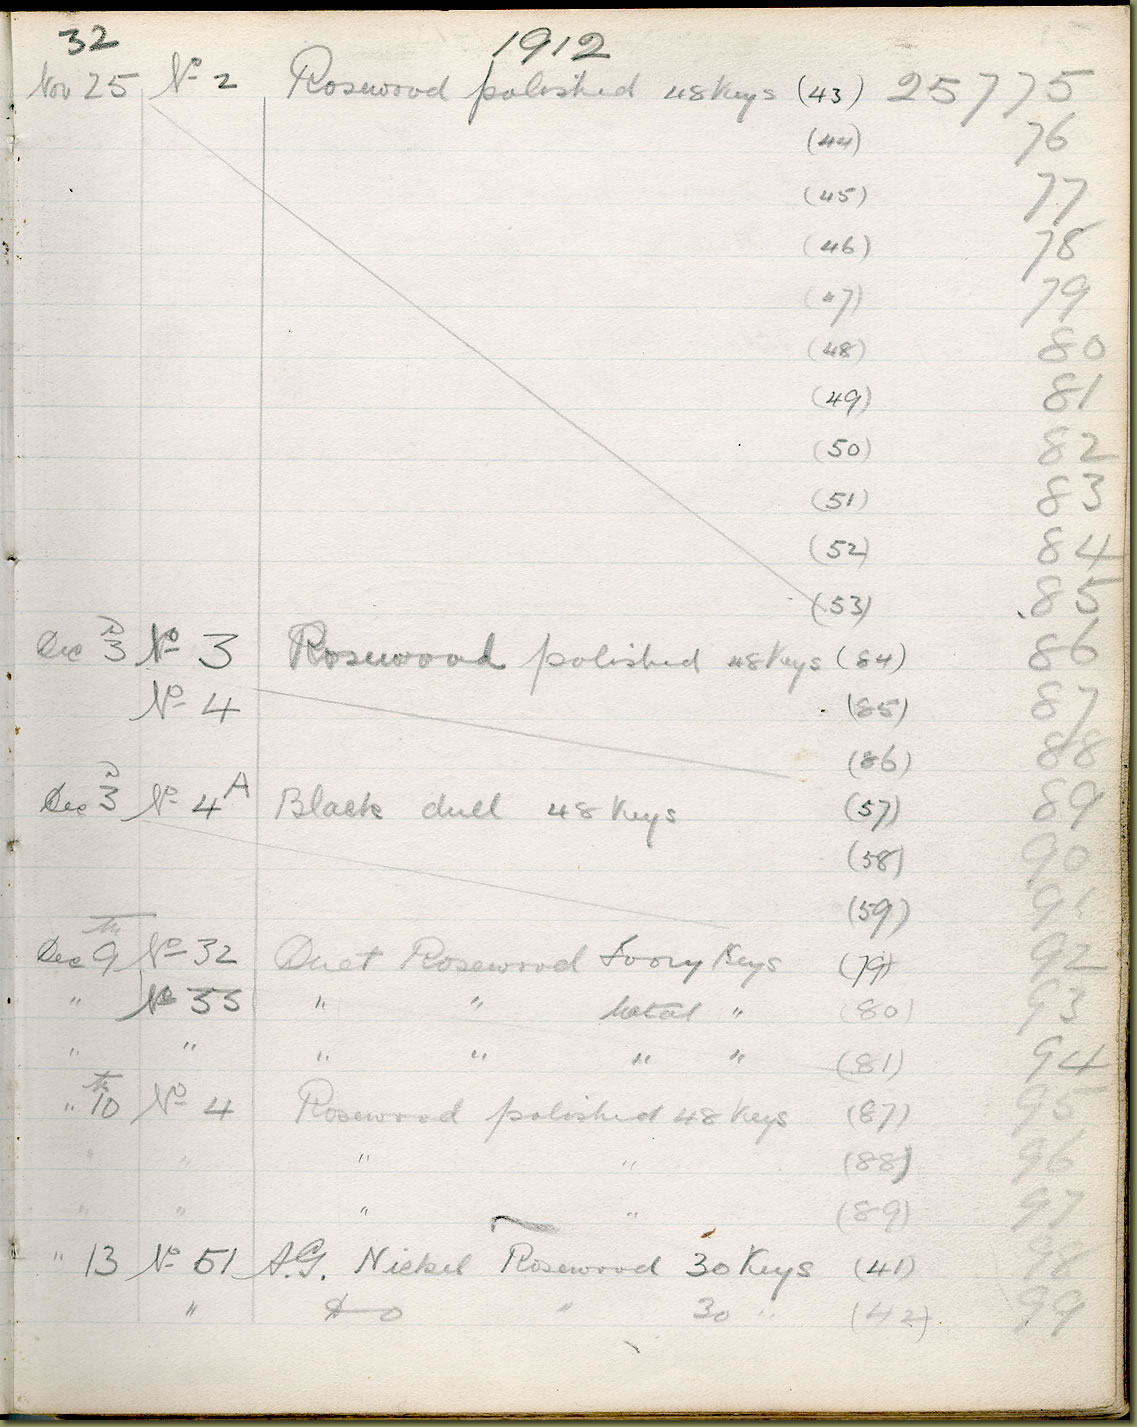 32 1912
Nov 25 No 2 Rosewood polished 48 Keys (43) 25775
(44) 76
(45) 77
(46) 78
(47) 79
(48) 80
(49) 81
(50) 82
(51) 83
(52) 84
(53) 85
Dec 3rd No 3 Rosewood polished 48 Keys (84) 86
No 4 (85) 87
(86) 88
Dec 3rd No 4A Black dull 48 Keys (57) 89
(58) 90
(59) 91
Dec 9th No 32 Duet Rosewood Ivory Keys (79) 92
" No 33 " " Metal " (80) 93
" " " " " " (81) 94
" 10th No 4 Rosewood polished 48 Keys (87) 95
" " " " (88) 96
" " " " (89) 97
" 13 No 51 A.G. Nickel Rosewood 30 Keys (41) 98
" Do " 30 " (42) 99